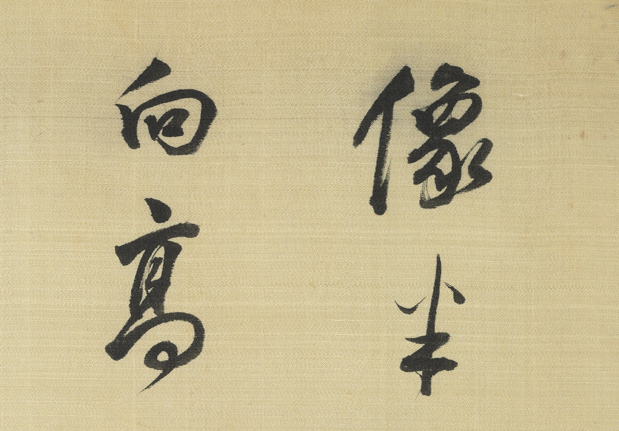 像半
向高